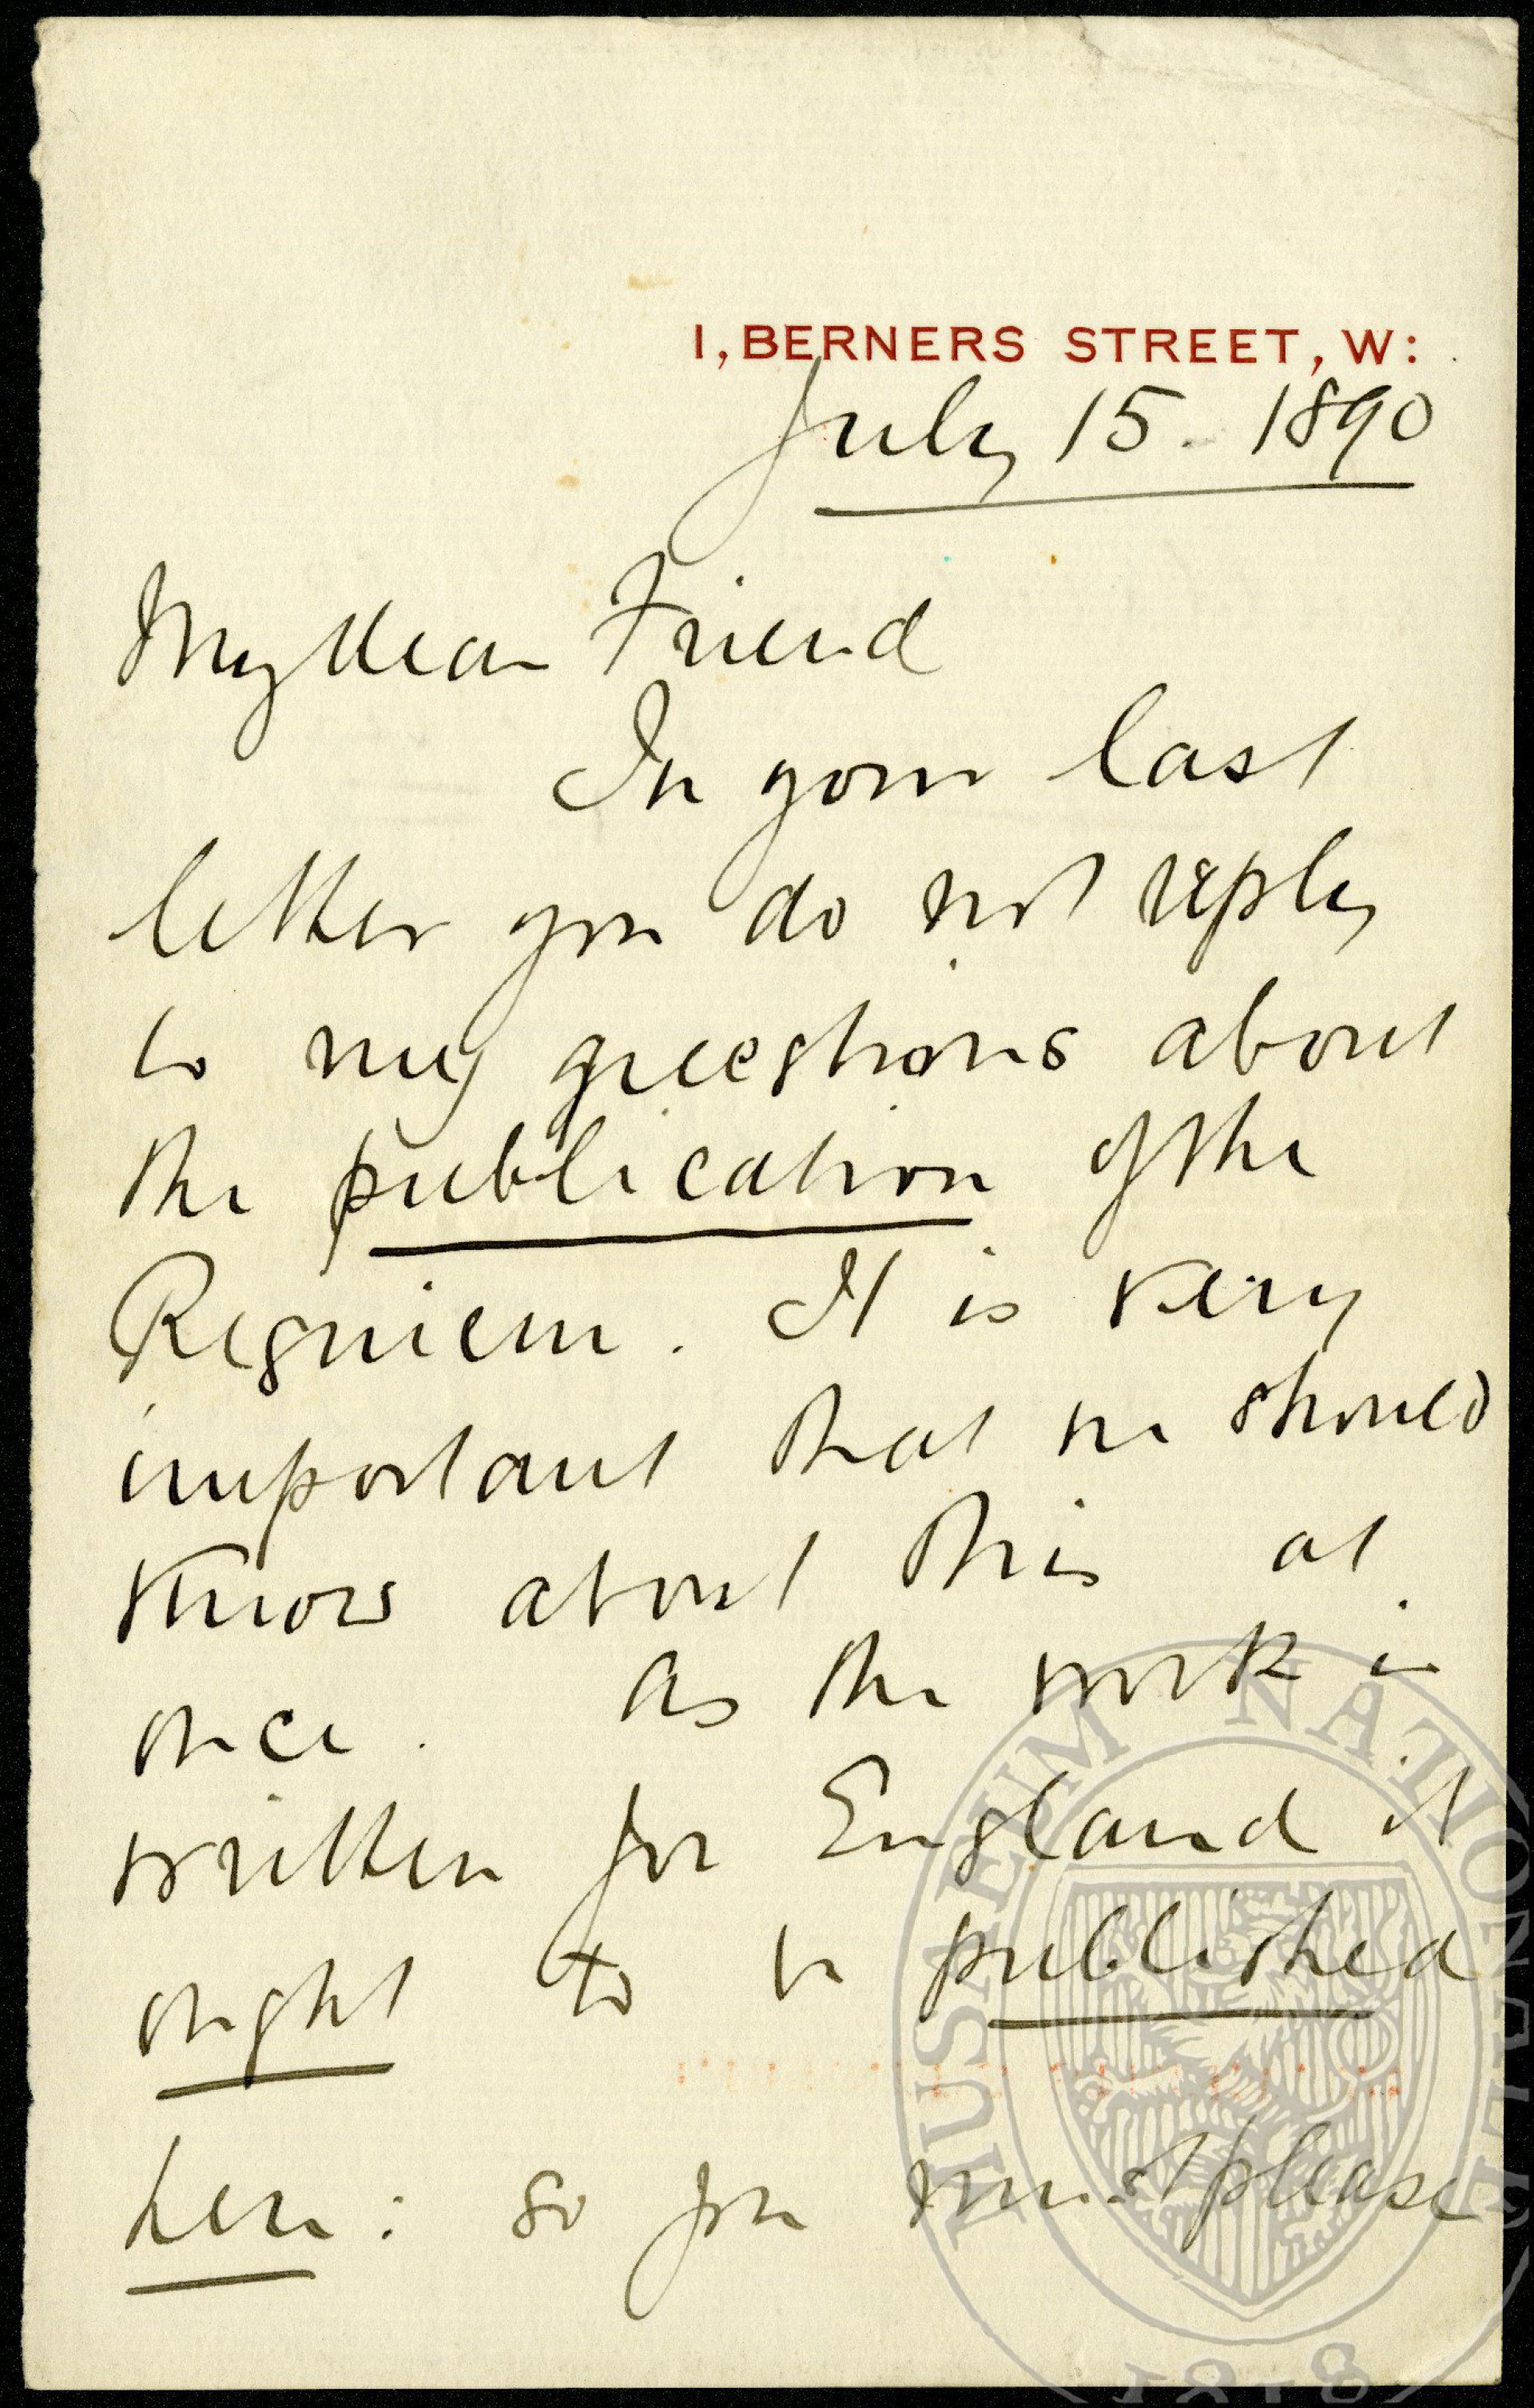 1, BERNERS STREET, W:
July 15. 1890
My dear Friend
In your last
letter you do not reply
to my questions about
the publication of the
Requiem. It is very
important that we should
know about this at
once. As the work is
written for England it
ought to be published
here: so you must please
MUSAEUM NATIONALE
1818